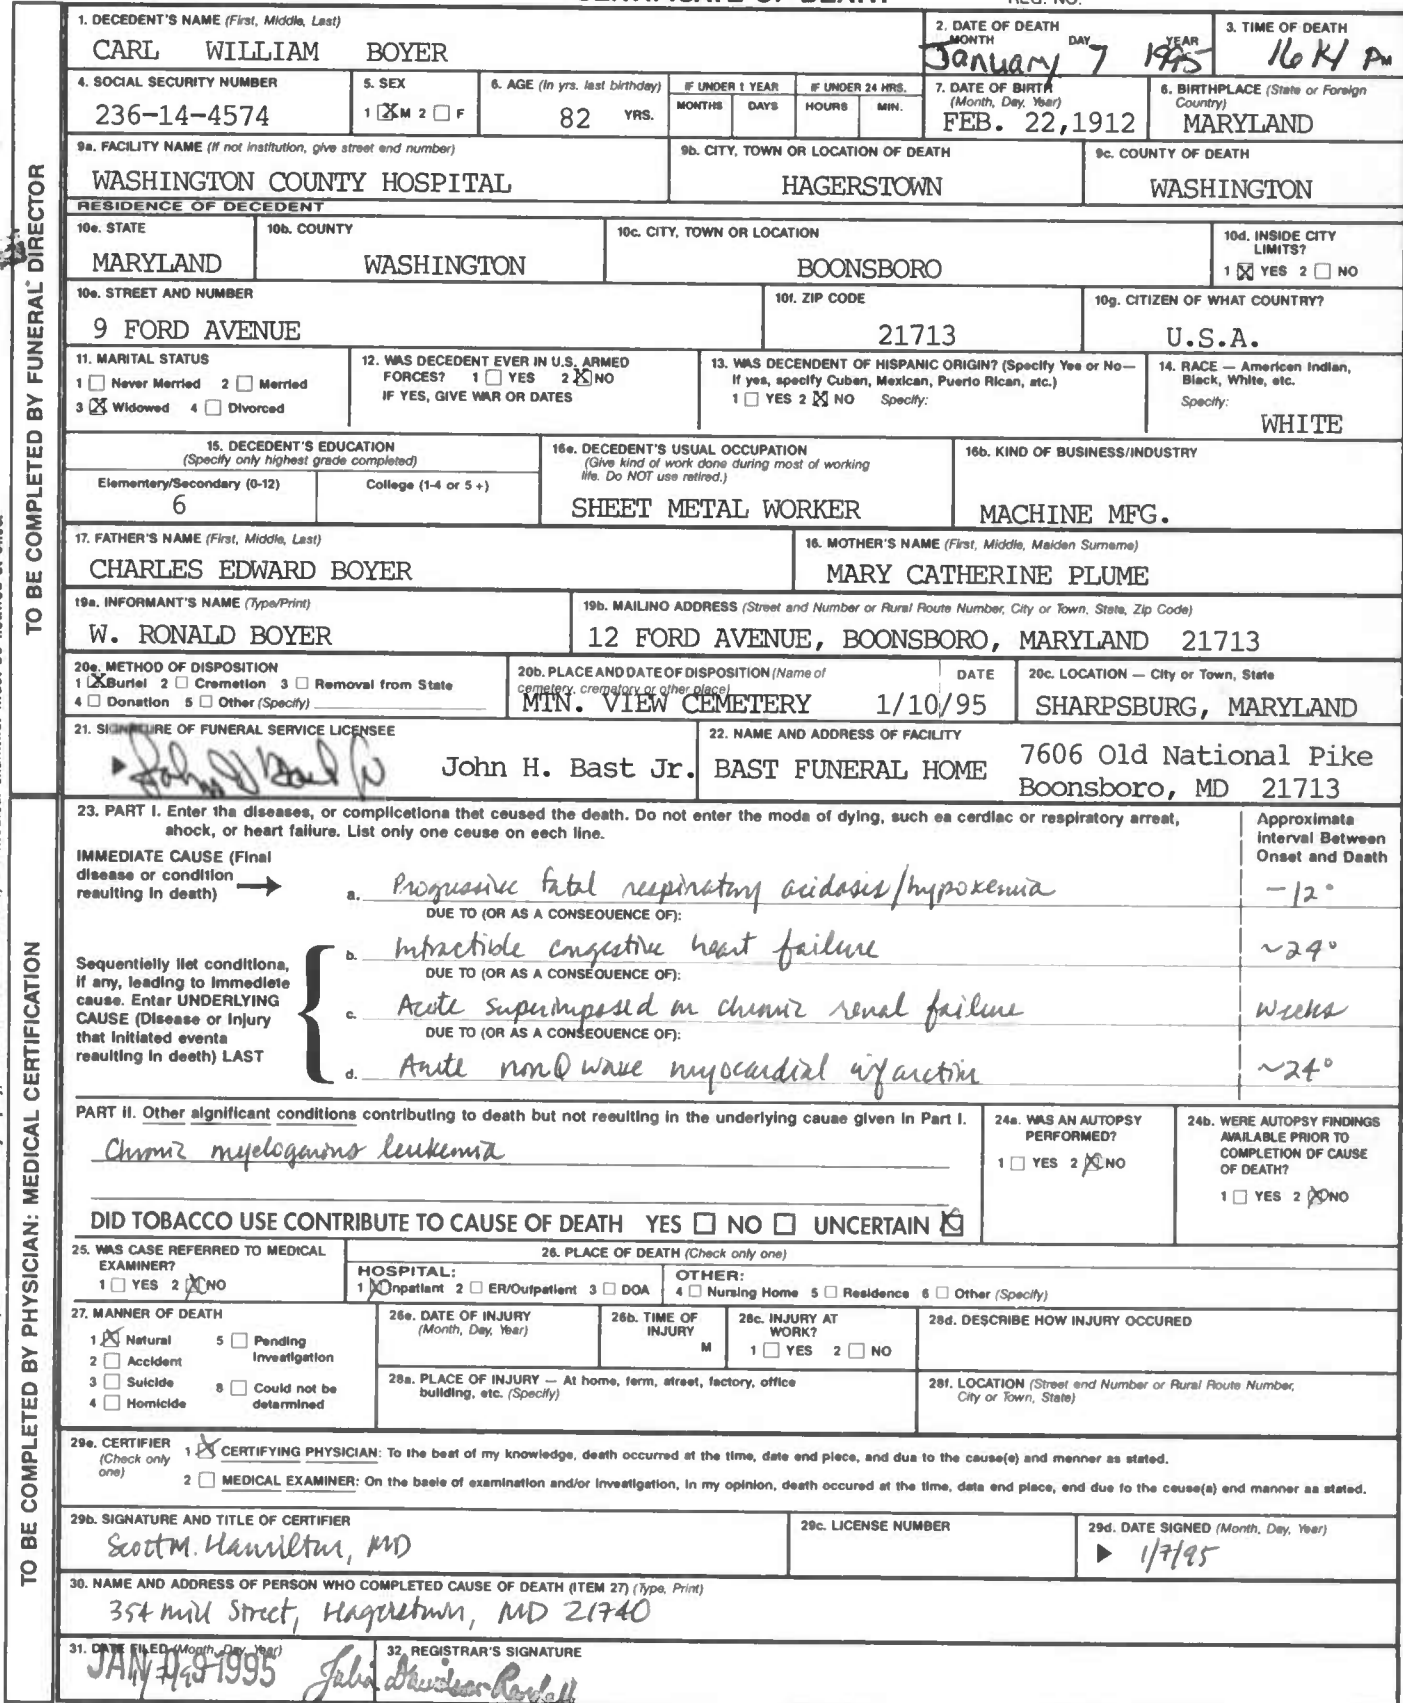 CERTIFICATE OF DEATH REG. NO.
1. DECEDENT'S NAME (First, Middle, Last)
CARL WILLIAM BOYER
2. DATE OF DEATH
MONTH DAY YEAR
January 7 1995
3. TIME OF DEATH
PM
4. SOCIAL SECURITY NUMBER
236-14-4574
5. SEX
1 ☒ M 2 ☐ F
6. AGE (In yrs. last birthday)
82 YRS.
IF UNDER 1 YEAR
MONTHS DAYS
IF UNDER 24 HRS.
HOURS MIN.
7. DATE OF BIRTH
(Month, Day, Year)
FEB. 22,1912
8. BIRTHPLACE (State or Foreign
Country)
MARYLAND
9a. FACILITY NAME (If not institution, give street and number)
WASHINGTON COUNTY HOSPITAL
9b. CITY, TOWN OR LOCATION OF DEATH
HAGERSTOWN
9c. COUNTY OF DEATH
WASHINGTON
RESIDENCE OF DECEDENT
10a. STATE
MARYLAND
10b. COUNTY
WASHINGTON
10c. CITY, TOWN OR LOCATION
BOONSBORO
10d. INSIDE CITY
LIMITS?
1 ☒ YES 2 ☐ NO
10e. STREET AND NUMBER
9 FORD AVENUE
10f. ZIP CODE
21713
10g. CITIZEN OF WHAT COUNTRY?
U.S.A.
11. MARITAL STATUS
1 ☐ Never Married 2 ☐ Married
3 ☒ Widowed 4 ☐ Divorced
12. WAS DECEDENT EVER IN U.S. ARMED
FORCES? 1 ☐ YES 2 ☒ NO
IF YES, GIVE WAR OR DATES
13. WAS DECENDENT OF HISPANIC ORIGIN? (Specify Yes or No—
If yes, specify Cuban, Mexican, Puerto Rican, etc.)
1 ☐ YES 2 ☒ NO Specify:
14. RACE — American Indian,
Black, White, etc.
Specify:
WHITE
15. DECEDENT'S EDUCATION
(Specify only highest grade completed)
Elementary/Secondary (0-12)
6
College (1-4 or 5 +)
16a. DECEDENT'S USUAL OCCUPATION
(Give kind of work done during most of working
life. Do NOT use retired.)
SHEET METAL WORKER
16b. KIND OF BUSINESS/INDUSTRY
MACHINE MFG.
17. FATHER'S NAME (First, Middle, Last)
CHARLES EDWARD BOYER
18. MOTHER'S NAME (First, Middle, Maiden Surname)
MARY CATHERINE PLUME
19a. INFORMANT'S NAME (Type/Print)
W. RONALD BOYER
19b. MAILING ADDRESS (Street and Number or Rural Route Number, City or Town, State, Zip Code)
12 FORD AVENUE, BOONSBORO, MARYLAND 21713
20a. METHOD OF DISPOSITION
1 ☒ Burial 2 ☐ Cremation 3 ☐ Removal from State
4 ☐ Donation 5 ☐ Other (Specify)
20b. PLACE AND DATE OF DISPOSITION (Name of
cemetery, crematory or other place) DATE
MTN. VIEW CEMETERY 1/10/95
20c. LOCATION — City or Town, State
SHARPSBURG, MARYLAND
21. SIGNATURE OF FUNERAL SERVICE LICENSEE
John H. Bast Jr.
22. NAME AND ADDRESS OF FACILITY
BAST FUNERAL HOME
7606 Old National Pike
Boonsboro, MD 21713
TO BE COMPLETED BY FUNERAL DIRECTOR
23. PART I. Enter the diseases, or complications that caused the death. Do not enter the mode of dying, such as cardiac or respiratory arrest,
shock, or heart failure. List only one cause on each line.
Approximate
Interval Between
Onset and Death
IMMEDIATE CAUSE (Final
disease or condition
resulting in death)
a. Progressive fatal respiratory acidosis/hypoxemia -12°
DUE TO (OR AS A CONSEQUENCE OF):
b. Intractible congestive heart failure ~24°
DUE TO (OR AS A CONSEQUENCE OF):
c. Acute superimposed on chronic renal failure weeks
DUE TO (OR AS A CONSEQUENCE OF):
d. Acute non Q wave myocardial infarction ~24°
Sequentially list conditions,
if any, leading to immediate
cause. Enter UNDERLYING
CAUSE (Disease or Injury
that initiated events
resulting in death) LAST
PART II. Other significant conditions contributing to death but not resulting in the underlying cause given in Part I.
Chronic myelogenous leukemia
24a. WAS AN AUTOPSY
PERFORMED?
1 ☐ YES 2 ☒ NO
24b. WERE AUTOPSY FINDINGS
AVAILABLE PRIOR TO
COMPLETION OF CAUSE
OF DEATH?
1 ☐ YES 2 ☒ NO
DID TOBACCO USE CONTRIBUTE TO CAUSE OF DEATH YES ☐ NO ☐ UNCERTAIN ☒
25. WAS CASE REFERRED TO MEDICAL
EXAMINER?
1 ☐ YES 2 ☒ NO
26. PLACE OF DEATH (Check only one)
HOSPITAL:
1 ☒ Inpatient 2 ☐ ER/Outpatient 3 ☐ DOA
OTHER:
4 ☐ Nursing Home 5 ☐ Residence 6 ☐ Other (Specify)
27. MANNER OF DEATH
1 ☒ Natural 5 ☐ Pending
Investigation
2 ☐ Accident
3 ☐ Suicide 8 ☐ Could not be
determined
4 ☐ Homicide
28a. DATE OF INJURY
(Month, Day, Year)
28b. TIME OF
INJURY
M
28c. INJURY AT
WORK?
1 ☐ YES 2 ☐ NO
28d. DESCRIBE HOW INJURY OCCURED
28a. PLACE OF INJURY — At home, farm, street, factory, office
building, etc. (Specify)
28f. LOCATION (Street and Number or Rural Route Number,
City or Town, State)
29a. CERTIFIER
(Check only
one)
1 ☒ CERTIFYING PHYSICIAN: To the best of my knowledge, death occurred at the time, date and place, and due to the cause(s) and manner as stated.
2 ☐ MEDICAL EXAMINER: On the basis of examination and/or investigation, in my opinion, death occured at the time, date and place, and due to the cause(s) and manner as stated.
29b. SIGNATURE AND TITLE OF CERTIFIER
Scott M. Hamilton, MD
29c. LICENSE NUMBER
29d. DATE SIGNED (Month, Day, Year)
1/7/95
30. NAME AND ADDRESS OF PERSON WHO COMPLETED CAUSE OF DEATH (ITEM 27) (Type, Print)
354 Mill Street, Hagerstown, MD 21740
31. DATE FILED (Month, Day, Year)
JAN 09 1995
32. REGISTRAR'S SIGNATURE
Julia Davidson-Randall
TO BE COMPLETED BY PHYSICIAN: MEDICAL CERTIFICATION